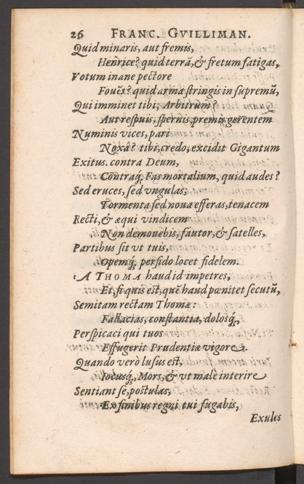 26 FRANC. GVILLIMAN.
Quid minaris, aut fremis,
Henrice? quid terrā, & fretum fatigas,
Votum inane pectore
Fouēs? quid arma stringis in supremū,
Qui imminet tibi, Arbitrum?
Aut respuis, spernis, premis gerentem
Numinis vices, pari
Noxâ? tibi, credo, excidit Gigantum
Exitus. contra Deum,
Contraq́, Fas mortalium, quid audes?
Sed eruces, sed vngulas,
Tormenta sed noua efferas, tenacem
Recti, & æqui vindicem
Non demouebis, fautor, & satelles,
Partibus sit vt tuis,
Opemq́, perfido locet fidelem.
A THOMA haud id impetres,
Et, si quis est, quē haud pœnitet secutū,
Semitam rectam Thomæ:
Fallacias, constantia, dolosq́,
Perspicaci qui tuos
Effugerit Prudentiæ vigore.
Quando verò lusus est,
Iocusq́, Mors, & vt malè interire
Sentiant se, postulas,
Ex finibus regni tui fugabis,
Exules